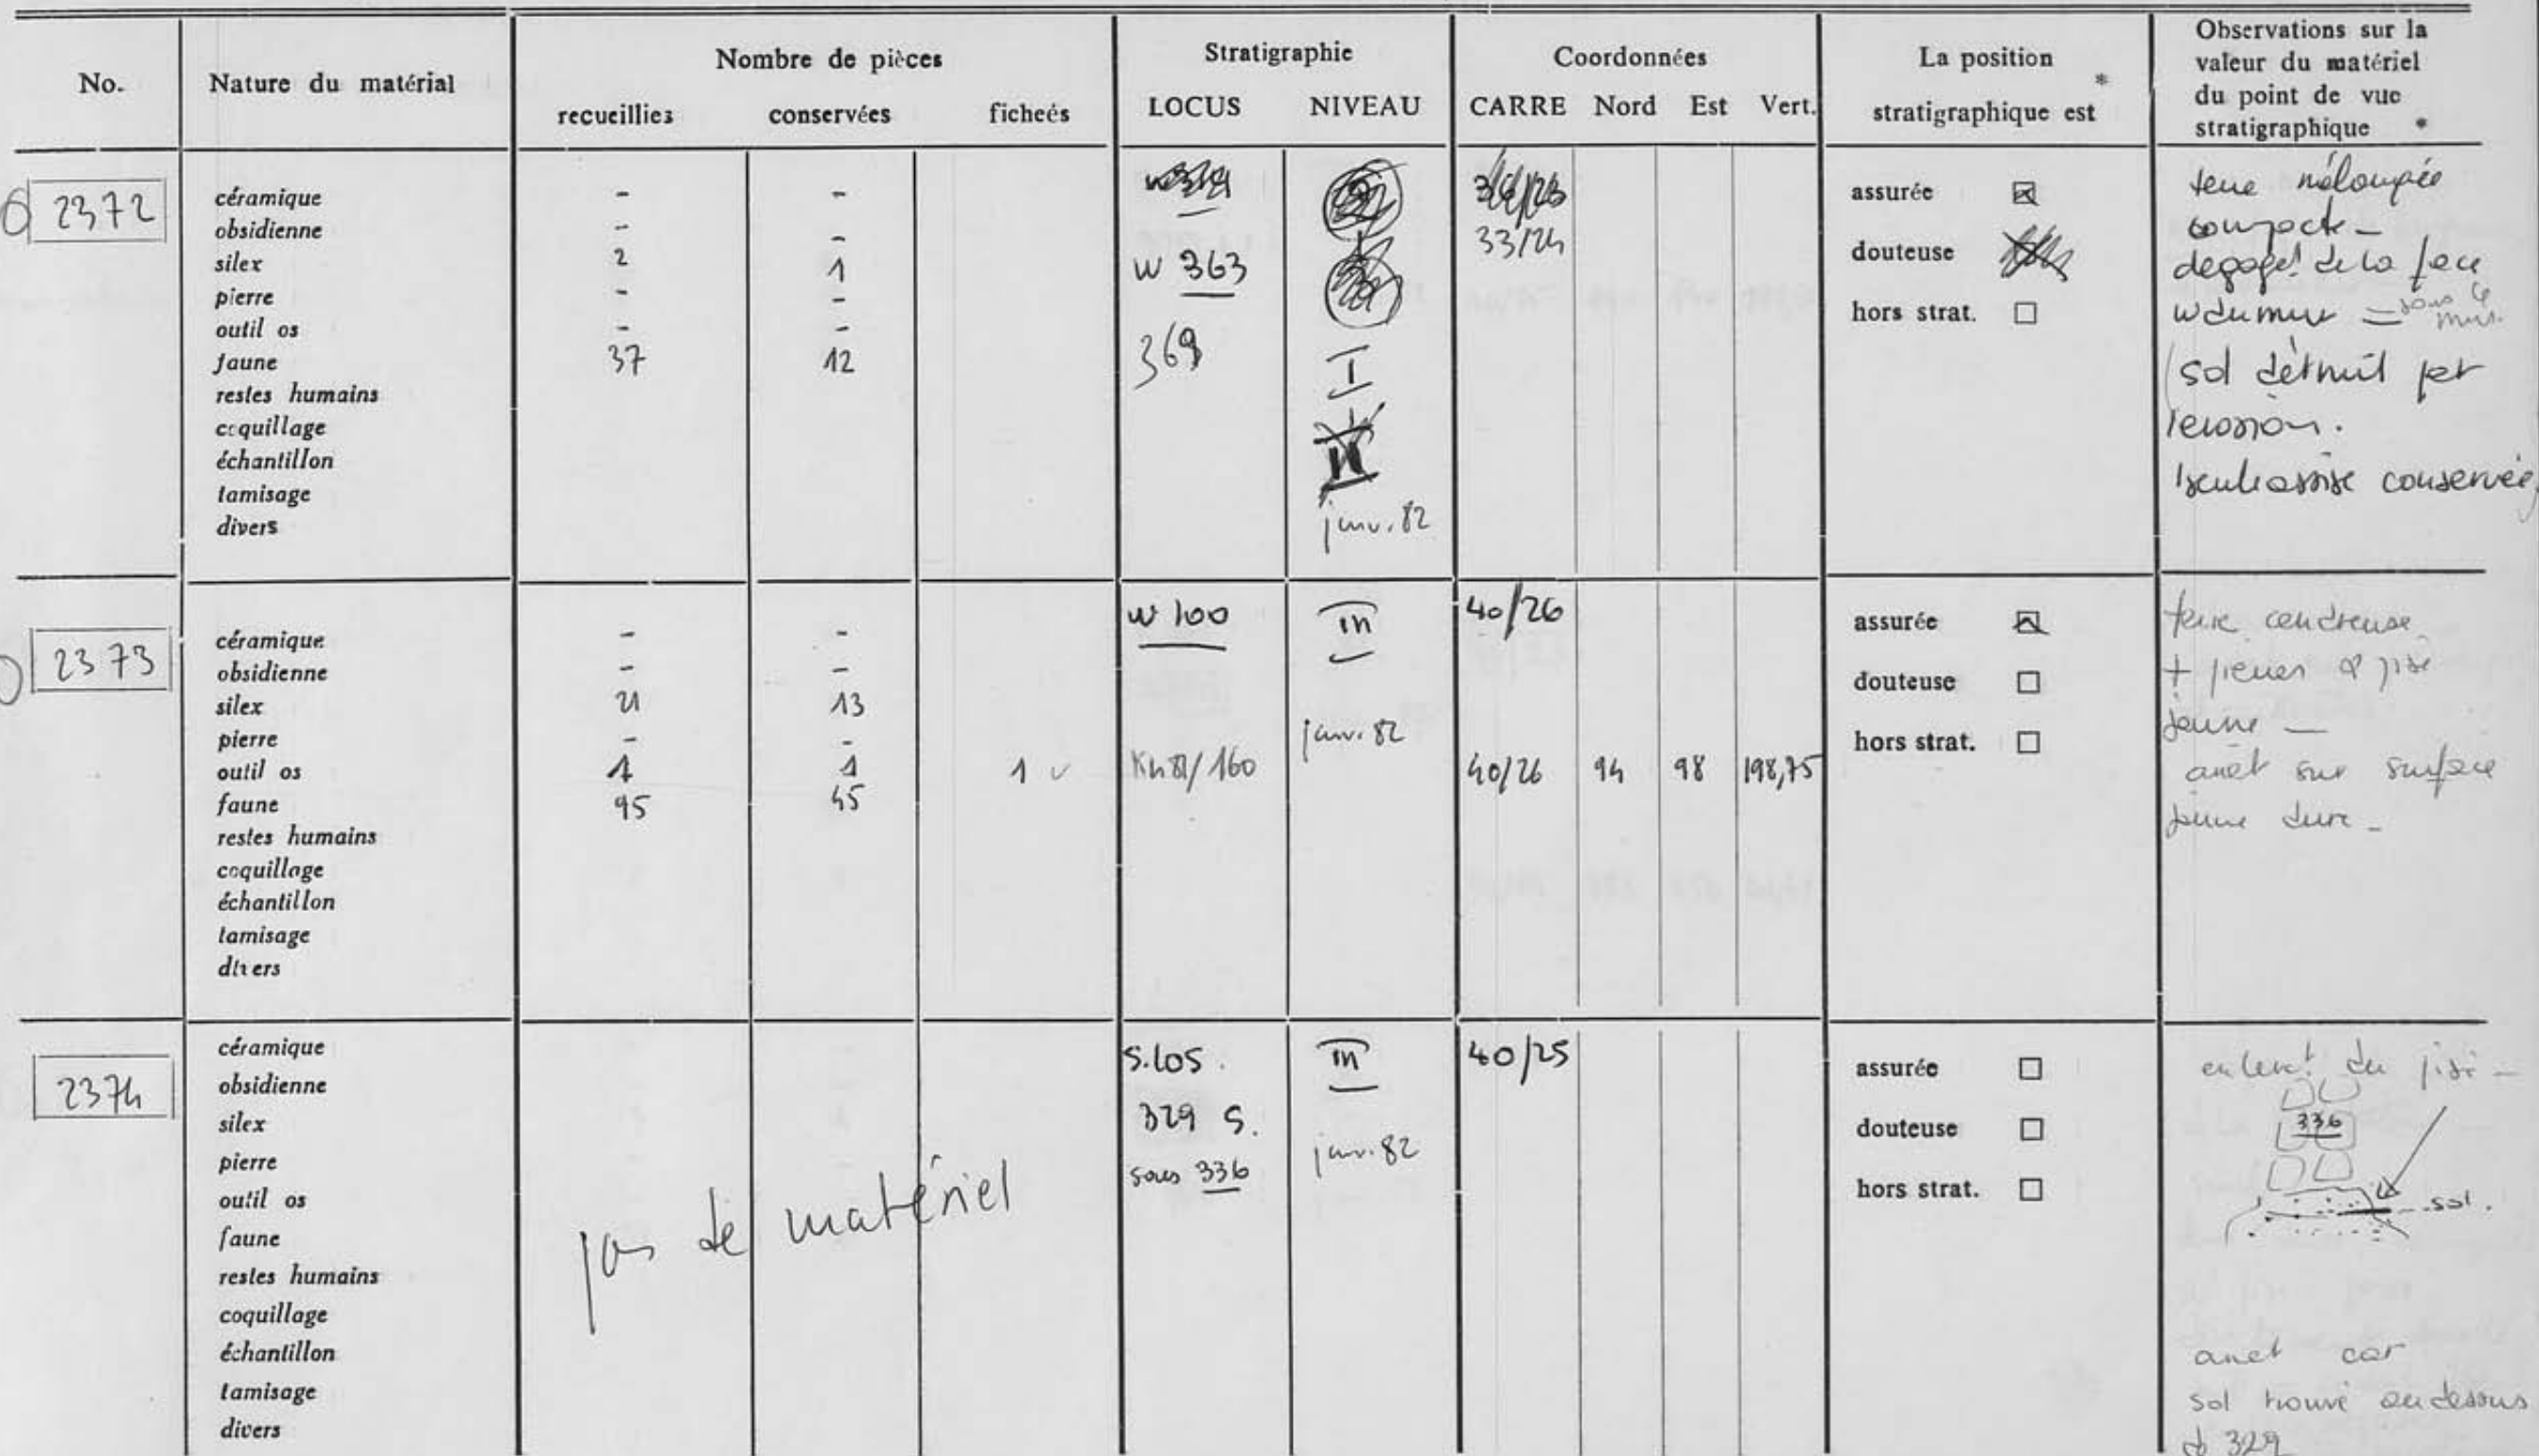 No. Nature du matérial Nombre de pièces Stratigraphie Coordonnées La position * Observations sur la
recueillies conservées ficheés LOCUS NIVEAU CARRE Nord Est Vert. stratigraphique est valeur du matériel
du point de vue
stratigraphique *
2372
céramique - -
obsidienne - -
silex 2 1
pierre - -
outil os - -
faune 37 12
restes humains
coquillage
échantillon
tamisage
divers
W 363
369
I
janv. 82
33/24
assurée ☒
douteuse
hors strat. ☐
terre mélangée
compacte -
dégagt de la face
W du mur = sous le
mur.
sol détruit par
l'érosion.
1 seule assise conservée
2373
céramique - -
obsidienne - -
silex 21 13
pierre - -
outil os 1 1 1 ✓ Kh 81/160 40/26 94 98 198,75
faune 95 45
restes humains
coquillage
échantillon
tamisage
divers
W 100
III
janv. 82
40/26
assurée ☒
douteuse ☐
hors strat. ☐
terre cendreuse
+ pierres & pisé
jaune -
arrêt sur surface
jaune dure -
2374
céramique
obsidienne
silex
pierre
outil os
faune
restes humains
coquillage
échantillon
tamisage
divers
pas de matériel
S. 105.
329 S.
sous 336
III
janv. 82
40/25
assurée ☐
douteuse ☐
hors strat. ☐
enlevt du pisé -
336
sol.
arrêt car
sol trouvé au dessous
d 329